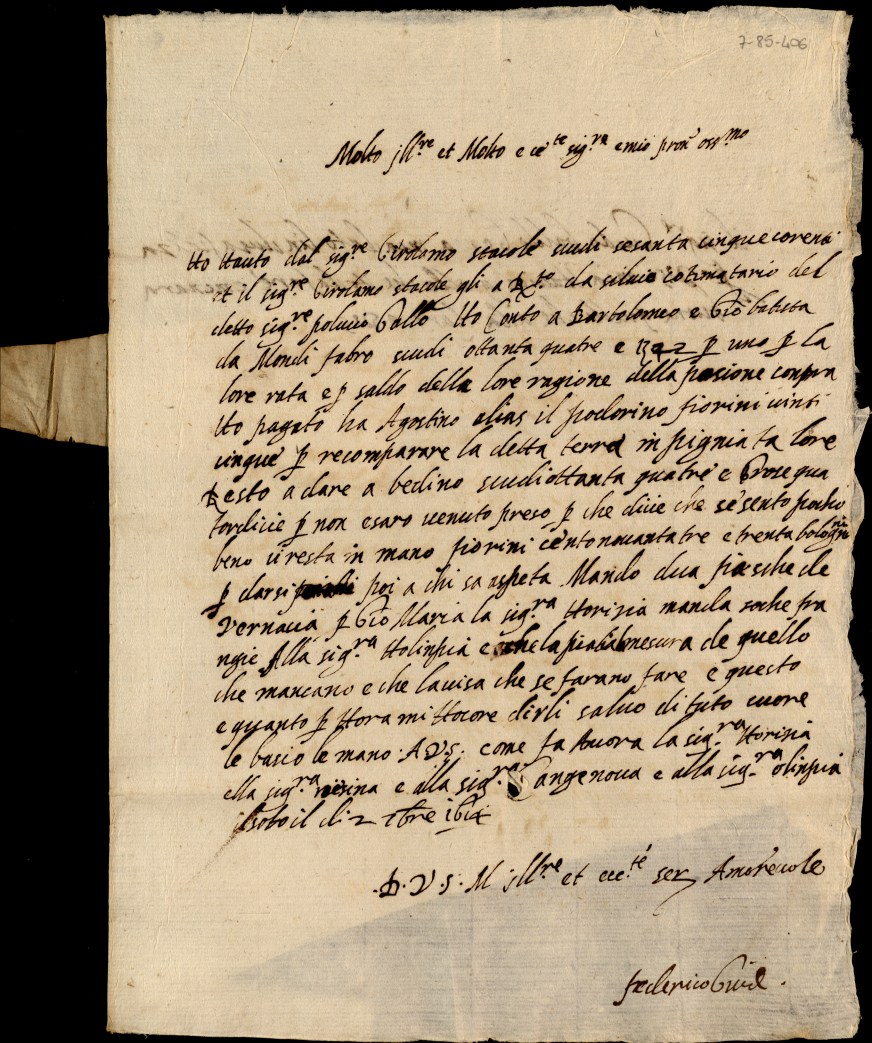 7-85-406
Molto jll.re et Molto e ce.te sig.ra e mio pron oss.mo
Ho Hauto dal sig.re Girolomo stacole scudi sesanta cinque corenti
et il sig.re Girolamo stacole gli a da silvio cotimatario del
detto sig.re polucio Gallo Ho Conto a Bartolomeo e Gio batista
da Mondi fabro scudi ottanta quatre e p uno p la
lore rata e p saldo della lore ragione della posione conpra
Ho pagato ha Agostino elias il poclorino fiorini uinti
cinque p recomparare la detta terra in pigniata lore
Resto a dare a bedino scudi ottanta quatre e
p non esaro uenuto preso p che dice che se sento pocho
beno ui resta in mano fiorini cento nouanta tre e trenta bolognini
p darsi poi a chi sa aspeta Mando dua fiasche de
vernacia p Gio Maria la sig.ra Horisia manda
Alla sig.ra Holinpia e che la mesura de quello
che mancano e che lauisa che se farano fare e questo
e quanto p Hora mi Hocore dirli saluo di tuto cuore
le bacio le mano A V.S. come fa Ancora la sig.ra Horisia
ella sig.ra e alla sig.ra angenoua e alla sig.ra olinpia
il di 2
D.V.S. M jll.re et ecc.te ser Amoreuole
federico